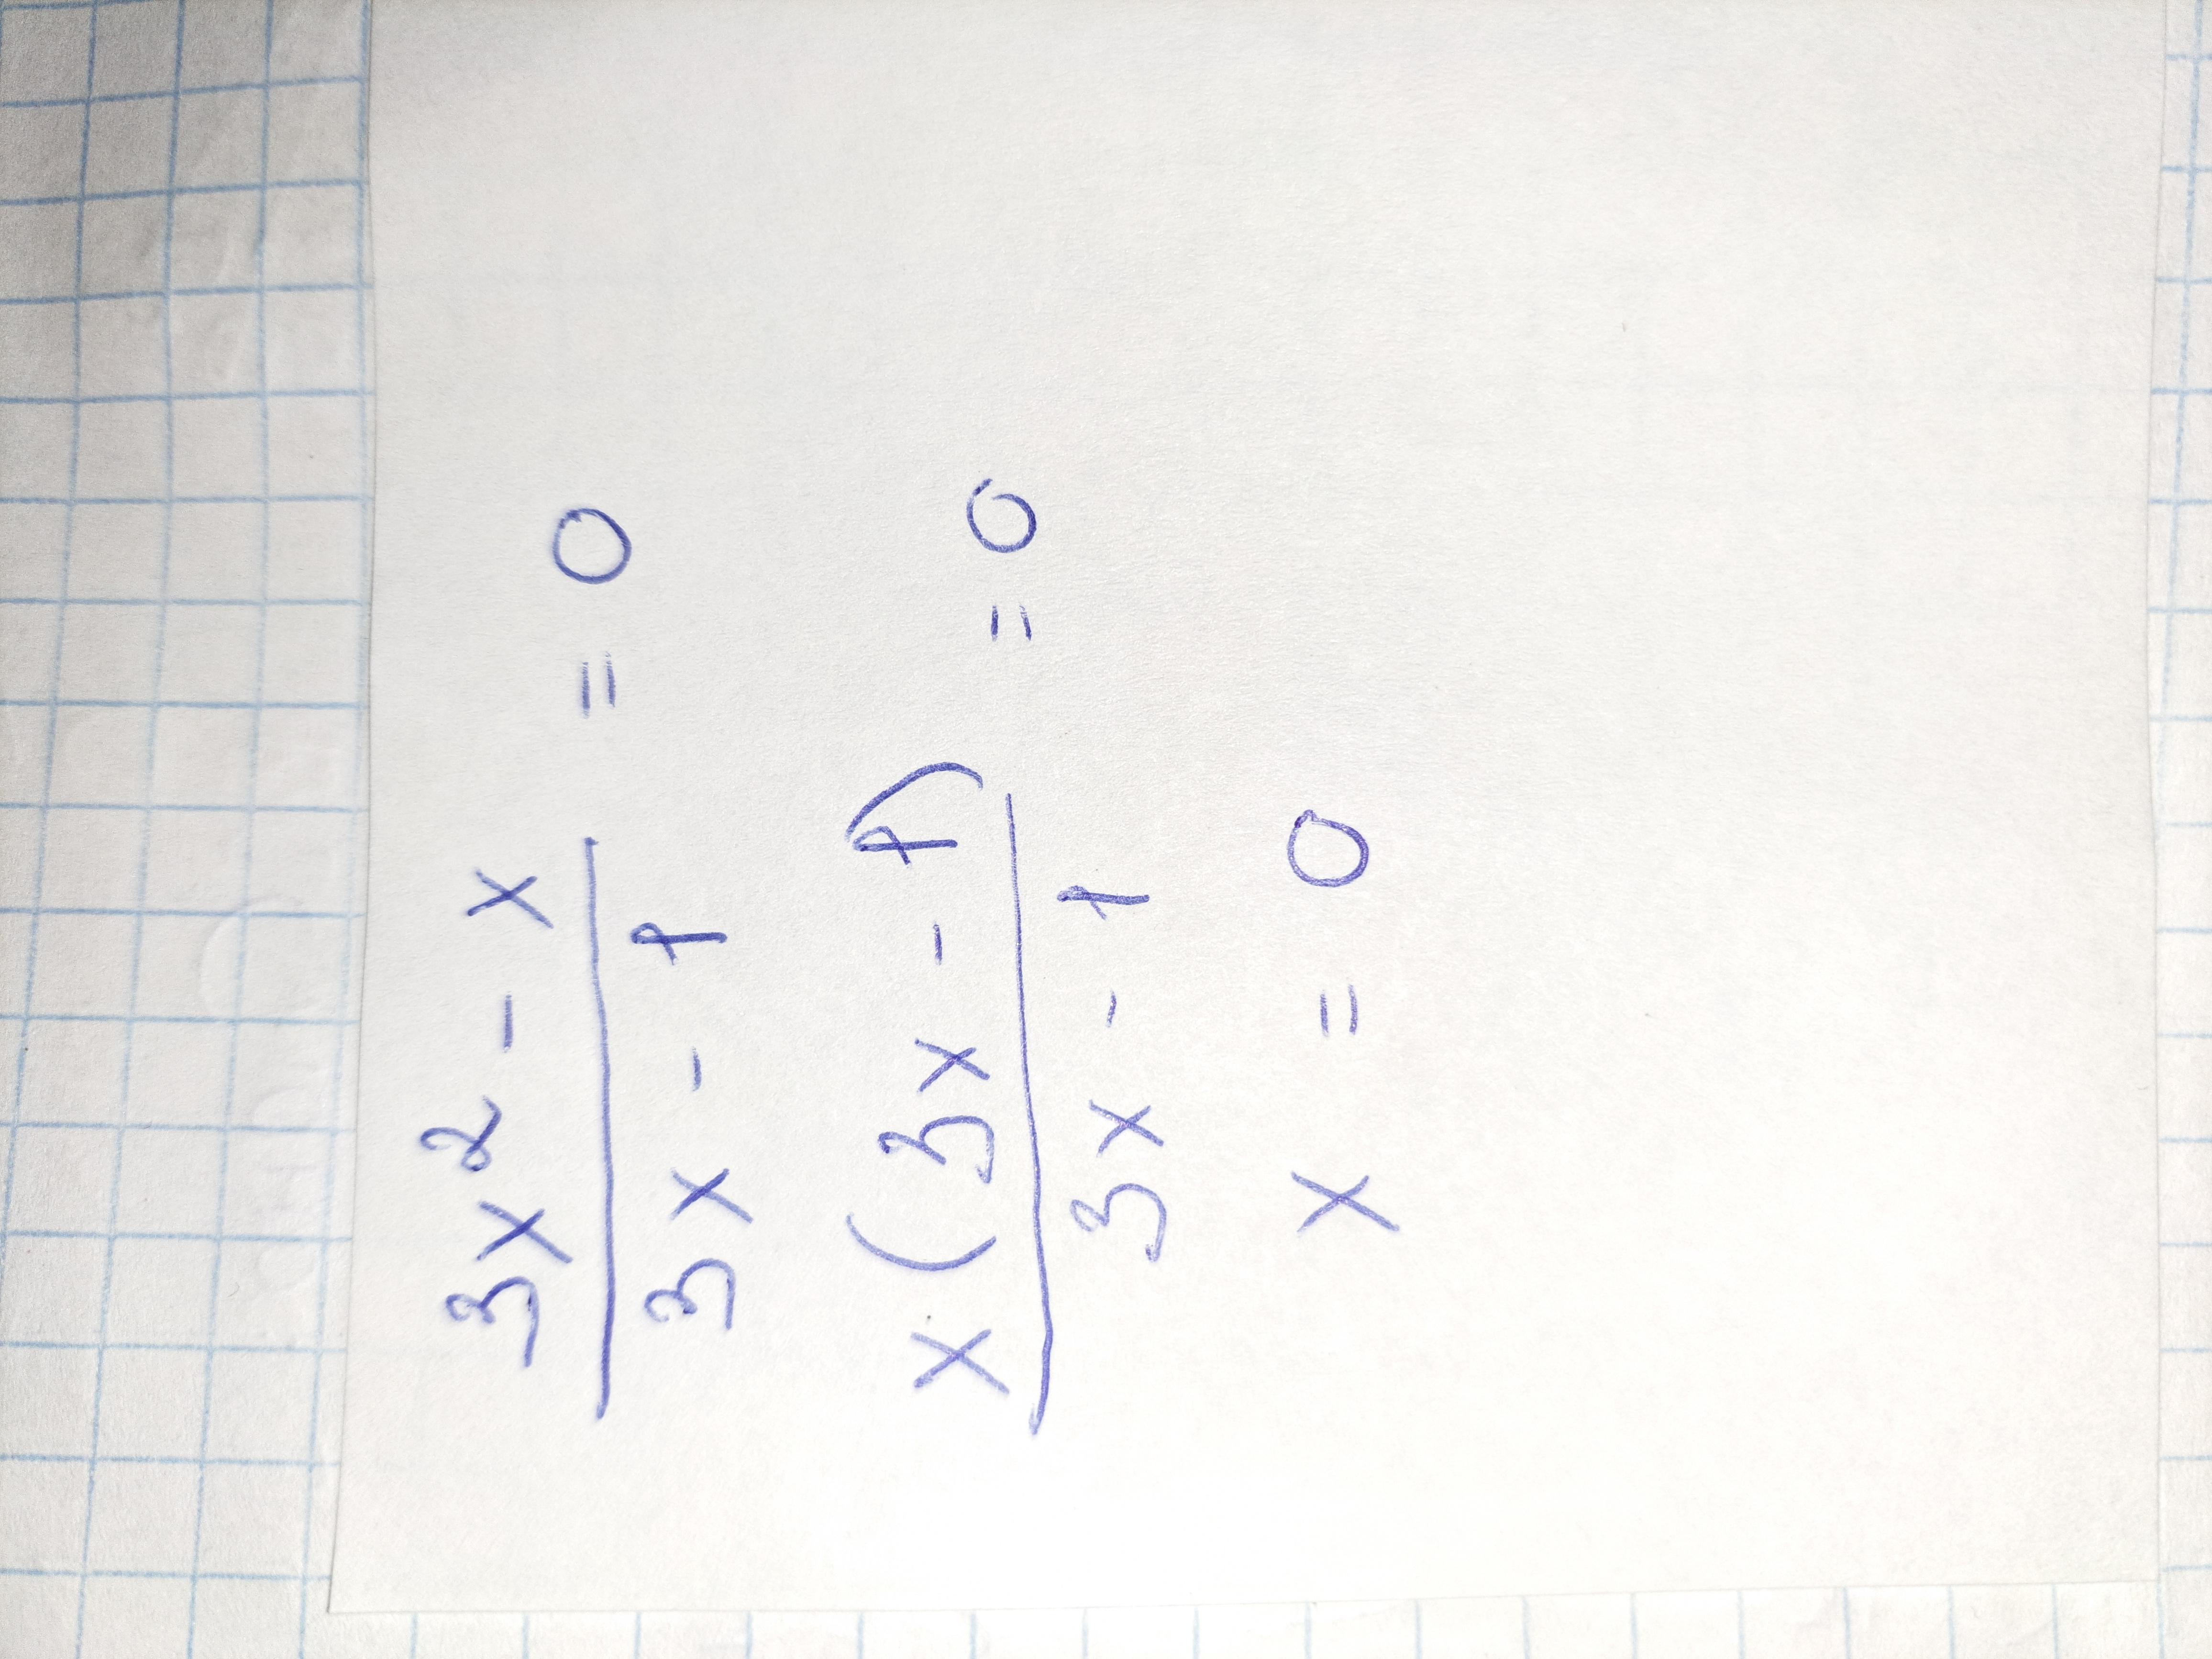 (3x² - x)/(3x - 1) = 0
x(3x - 1)/(3x - 1) = 0
x = 0